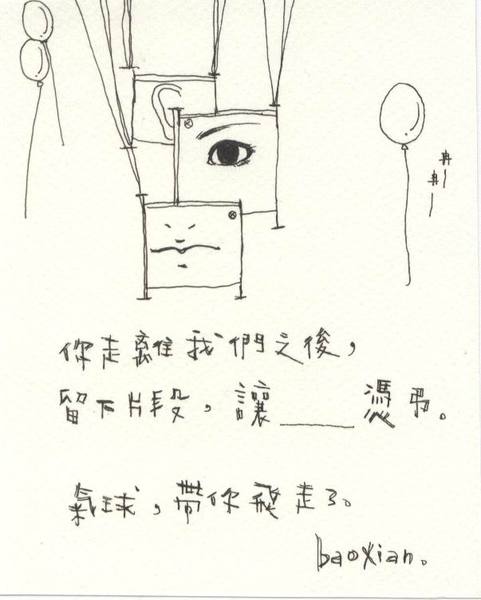 冉冉
你走離我們之後，
留下片段，讓____憑弔。
氣球，帶你飛走了。
baoxian。